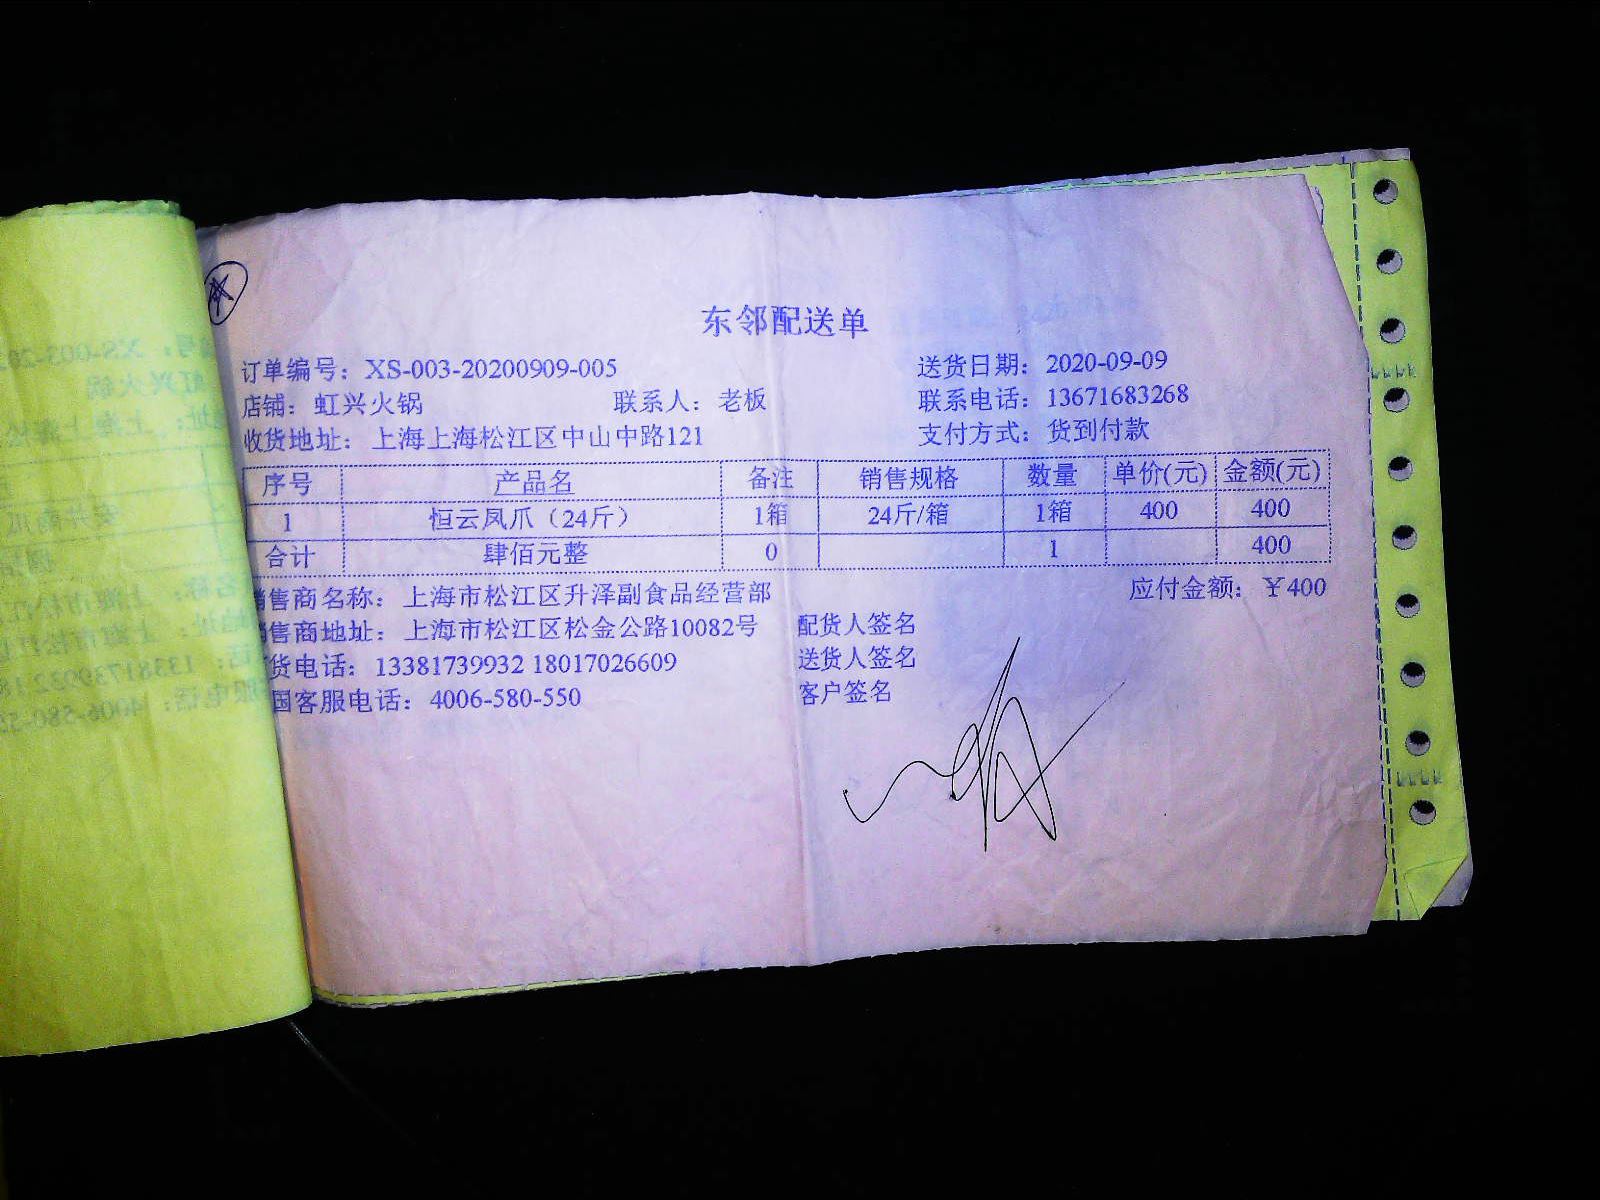 东邻配送单
订单编号：XS-003-20200909-005 送货日期：2020-09-09
店铺：虹兴火锅 联系人：老板 联系电话：13671683268
收货地址：上海上海松江区中山中路121 支付方式：货到付款
序号 产品名 备注 销售规格 数量 单价(元) 金额(元)
1 恒云凤爪（24斤） 1箱 24斤/箱 1箱 400 400
合计 肆佰元整 0 1 400
售商名称：上海市松江区升泽副食品经营部 应付金额：￥400
售商地址：上海市松江区松金公路10082号 配货人签名
货电话：13381739932 18017026609 送货人签名
国客服电话：4006-580-550 客户签名